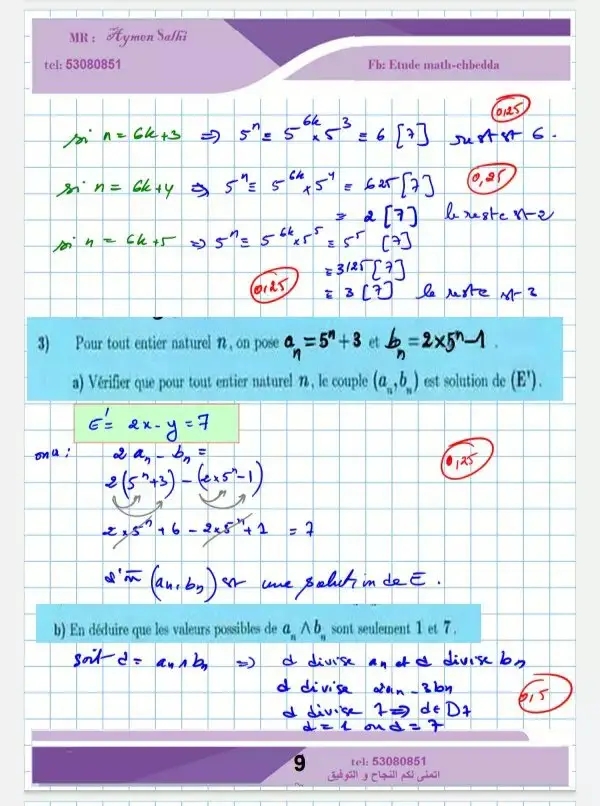 MR : Aymen Salhi
tel: 53080851
Fb: Etude math-chbedda
0,25
si n = 6k+3 ⇒ 5ⁿ ≡ 5^{6k} × 5³ ≡ 6 [7] rest st 6.
si n = 6k+4 ⇒ 5ⁿ ≡ 5^{6k} × 5⁴ ≡ 625 [7] 0,25
≡ 2 [7] le reste st 2
si n = 6k+5 ⇒ 5ⁿ ≡ 5^{6k} × 5⁵ ≡ 5⁵ [7]
≡ 3125 [7]
0,25 ≡ 3 [7] le reste st 3
3) Pour tout entier naturel n, on pose aₙ = 5ⁿ + 3 et bₙ = 2×5ⁿ - 1 .
a) Vérifier que pour tout entier naturel n, le couple (aₙ, bₙ) est solution de (E').
E' = 2x - y = 7
on a : 2 aₙ - bₙ =
2(5ⁿ+3) - (2×5ⁿ-1) 0,25
2×5ⁿ + 6 - 2×5ⁿ + 1 = 7
d'où (aₙ, bₙ) st une solution de E .
b) En déduire que les valeurs possibles de aₙ ∧ bₙ sont seulement 1 et 7.
soit d = aₙ ∧ bₙ ⇒ d divise aₙ et d divise bₙ
d divise 2aₙ - 3bₙ 0,5
d divise 7 ⇒ d ∈ D7
d = 1 ou d = 7
9
tel: 53080851
اتمنى لكم النجاح و التوفيق